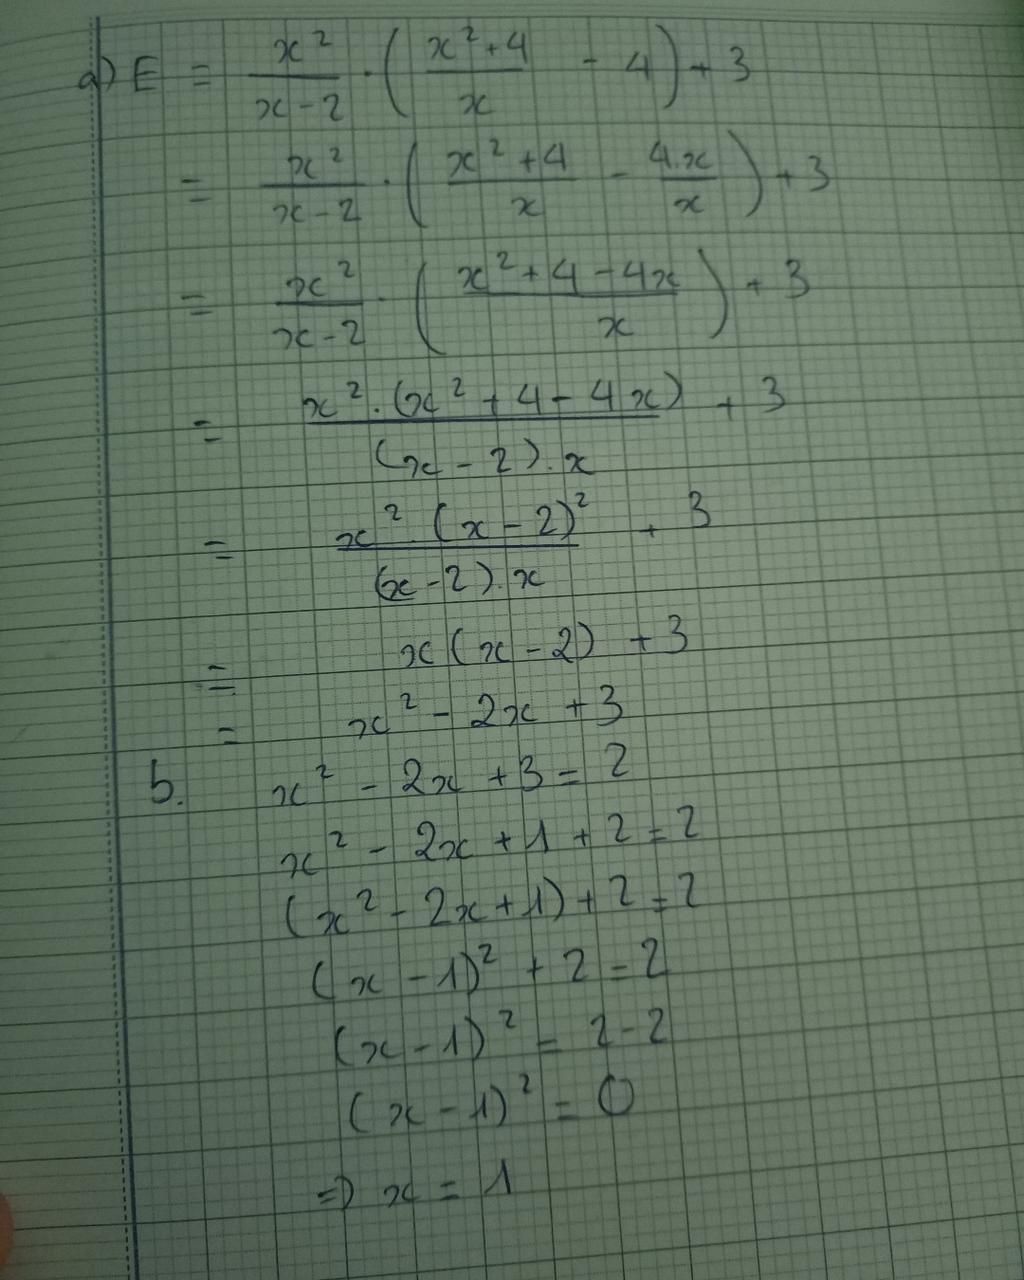 a) E = x²/(x-2) . ((x²+4)/x - 4) + 3
= x²/(x-2) . ((x²+4)/x - 4.x/x) + 3
= x²/(x-2) . ((x²+4-4x)/x) + 3
= (x².(x²+4-4x))/((x-2).x) + 3
= (x².(x-2)²)/((x-2).x) + 3
= x(x-2) + 3
= x² - 2x + 3
b. x² - 2x + 3 = 2
x² - 2x + 1 + 2 = 2
(x² - 2x + 1) + 2 = 2
(x - 1)² + 2 = 2
(x - 1)² = 2 - 2
(x - 1)² = 0
=> x = 1